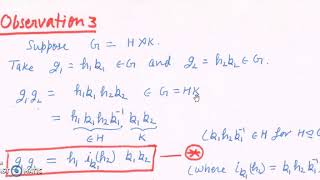 Observation 3
Suppose G = H⋊K.
Take g₁ = h₁k₁ ∈ G and g₂ = h₂k₂ ∈ G.
g₁g₂ = h₁ k₁ h₂ k₂ ∈ G = HK
= h₁ k₁ h₂ k₁⁻¹ k₁ k₂
∈H K
(k₁h₂k₁⁻¹ ∈ H for H ⊴ G
g₁g₂ = h₁ i_{k₁}(h₂) k₁ k₂ — ⊛
(where i_{k₁}(h₂) = k₁h₂k₁⁻¹